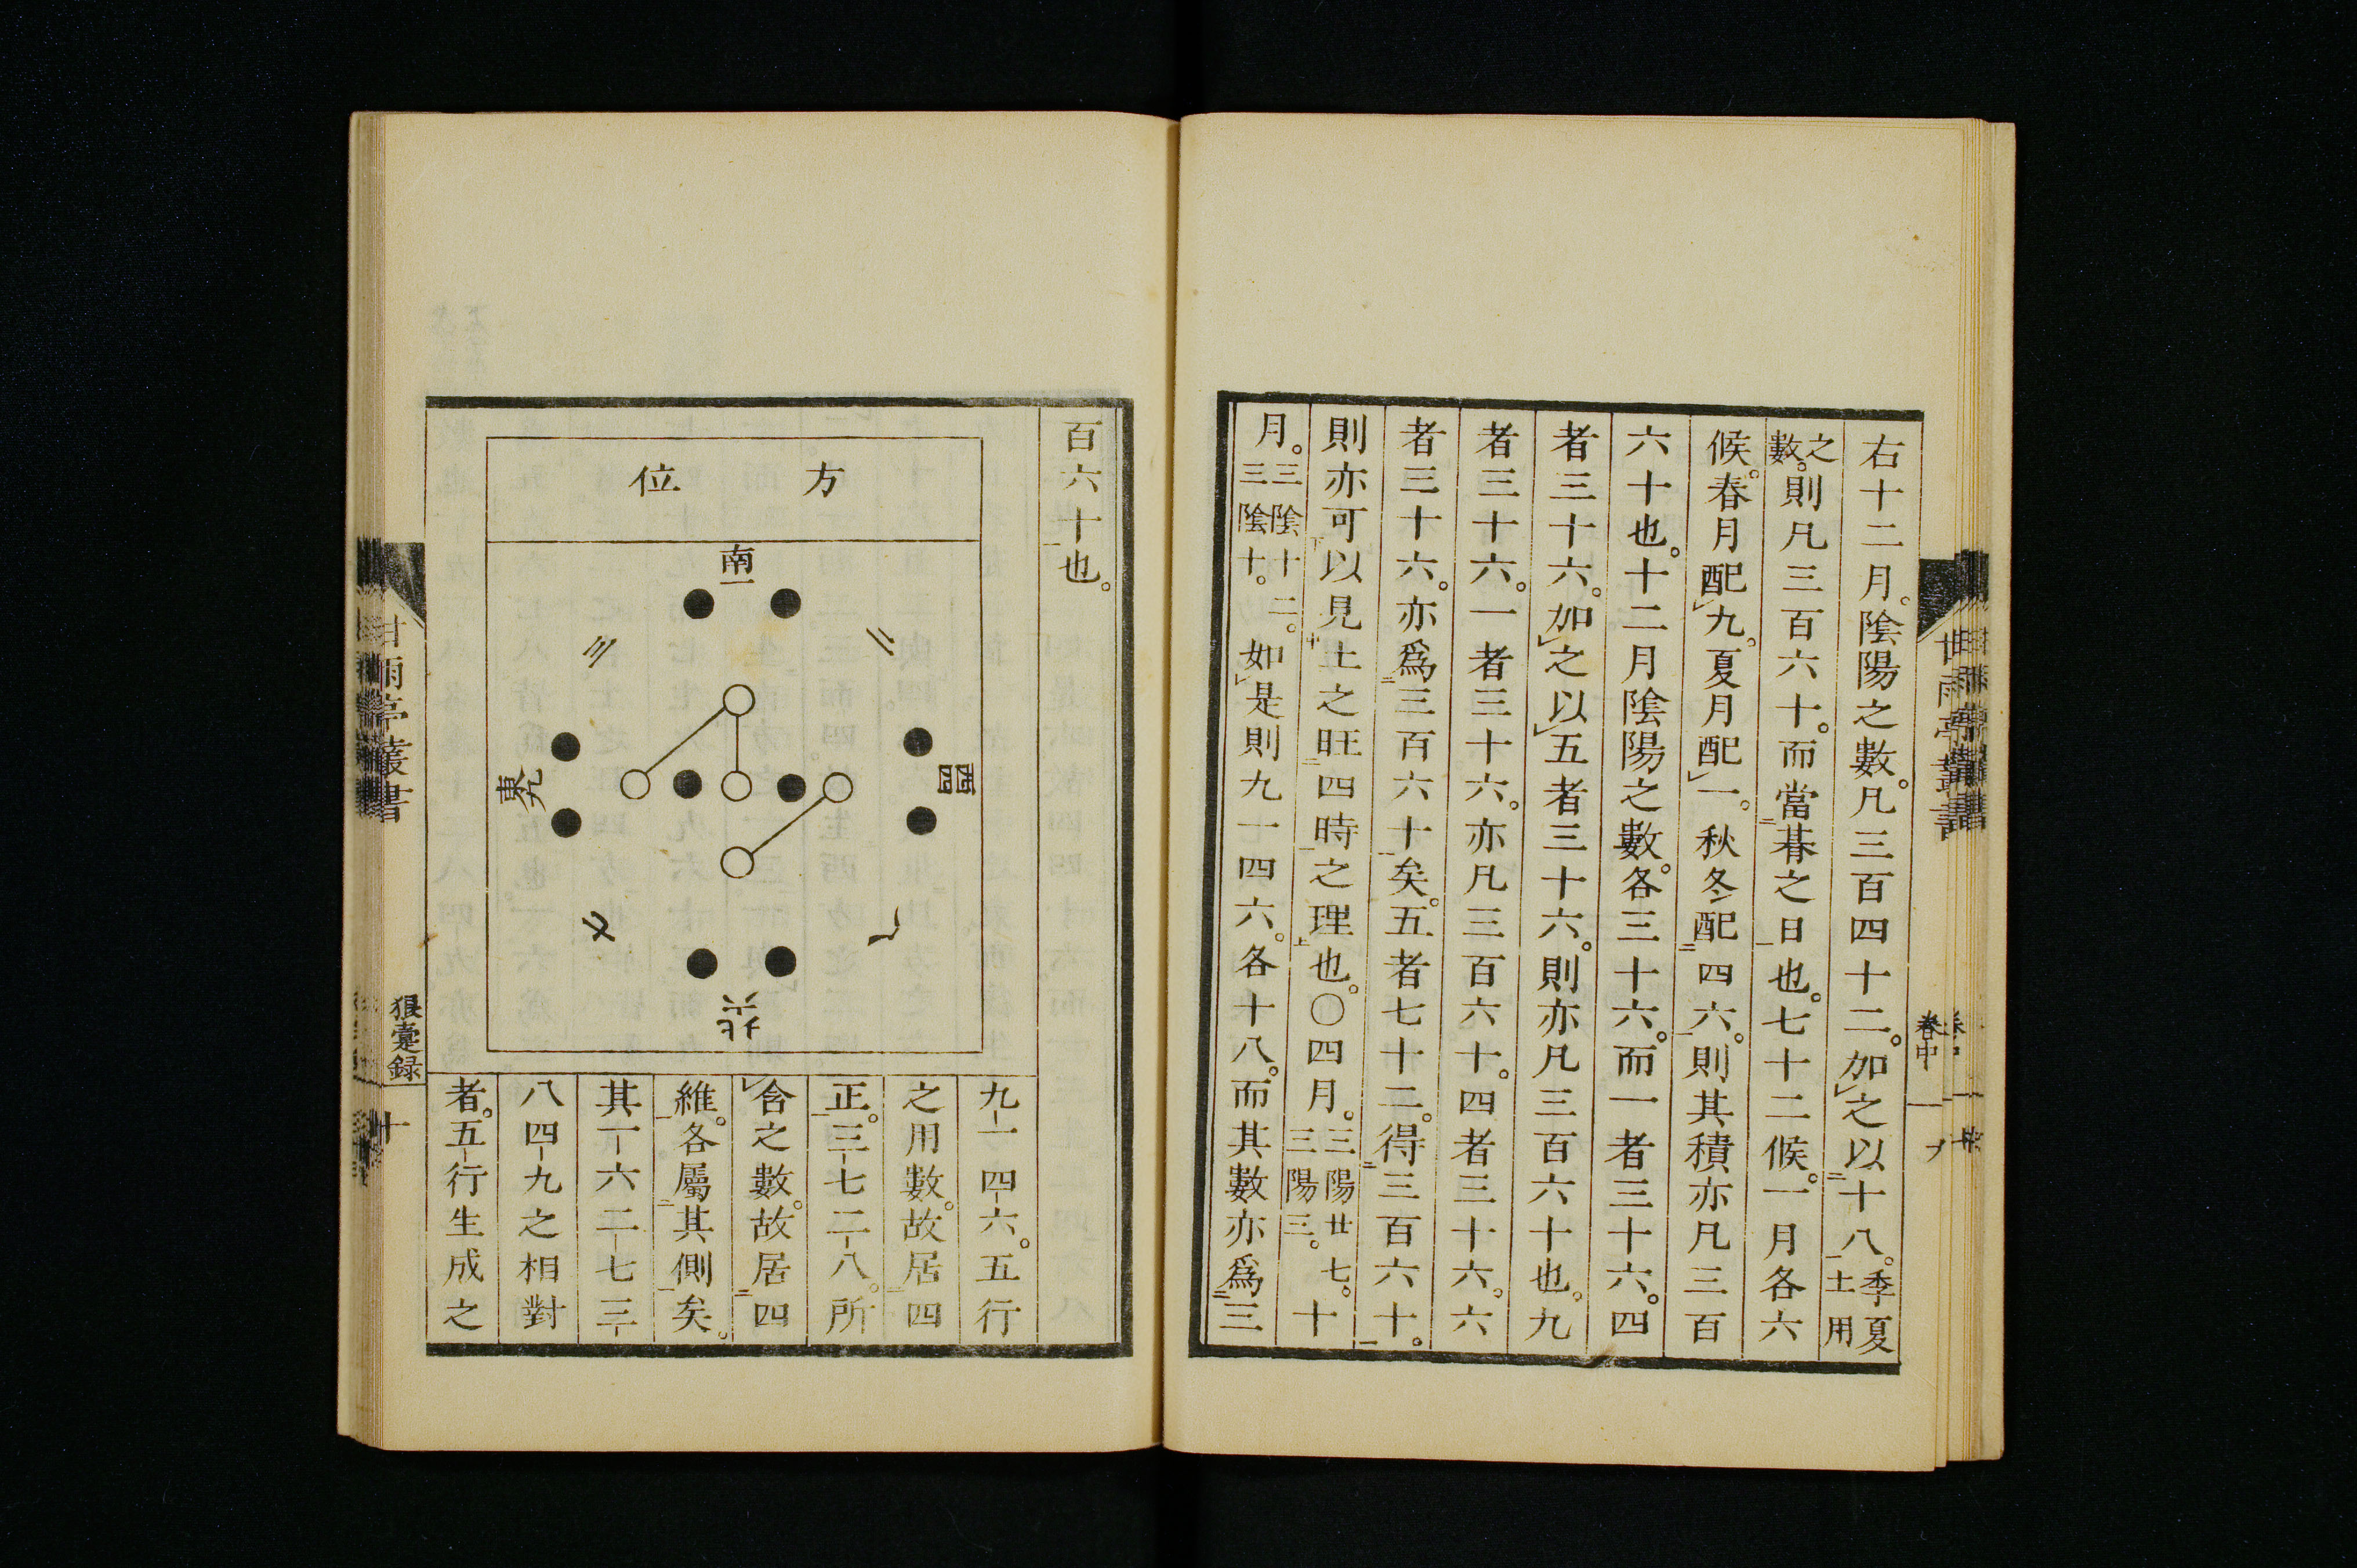 右十二月。陰陽之數。凡三百四十二。加之以十八。季夏土用
之數。則凡三百六十。而當朞之日也。七十二候。一月各六
候。春月配九。夏月配一。秋冬配四六。則其積亦凡三百
六十也。十二月陰陽之數。各三十六。而一者三十六。四
者三十六。加之以五者三十六。則亦凡三百六十也。九
者三十六。一者三十六。亦凡三百六十。四者三十六。六
者三十六。亦爲三百六十矣。五者七十二。得三百六十。
則亦可以見土之旺四時之理也。〇四月。三陽廿七。三陽三。十
月。三陰十二。三陰十。如是則九一四六。各十八。而其數亦爲三
卷中
百六十也。
方位
南一
西四
東九
九一四六。五行
之用數。故居四
正。三七二八。所
含之數。故居四
維。各屬其側矣。
其一六二七三
八四九之相對
者。五行生成之
甘雨亭叢書
狼疐録
十